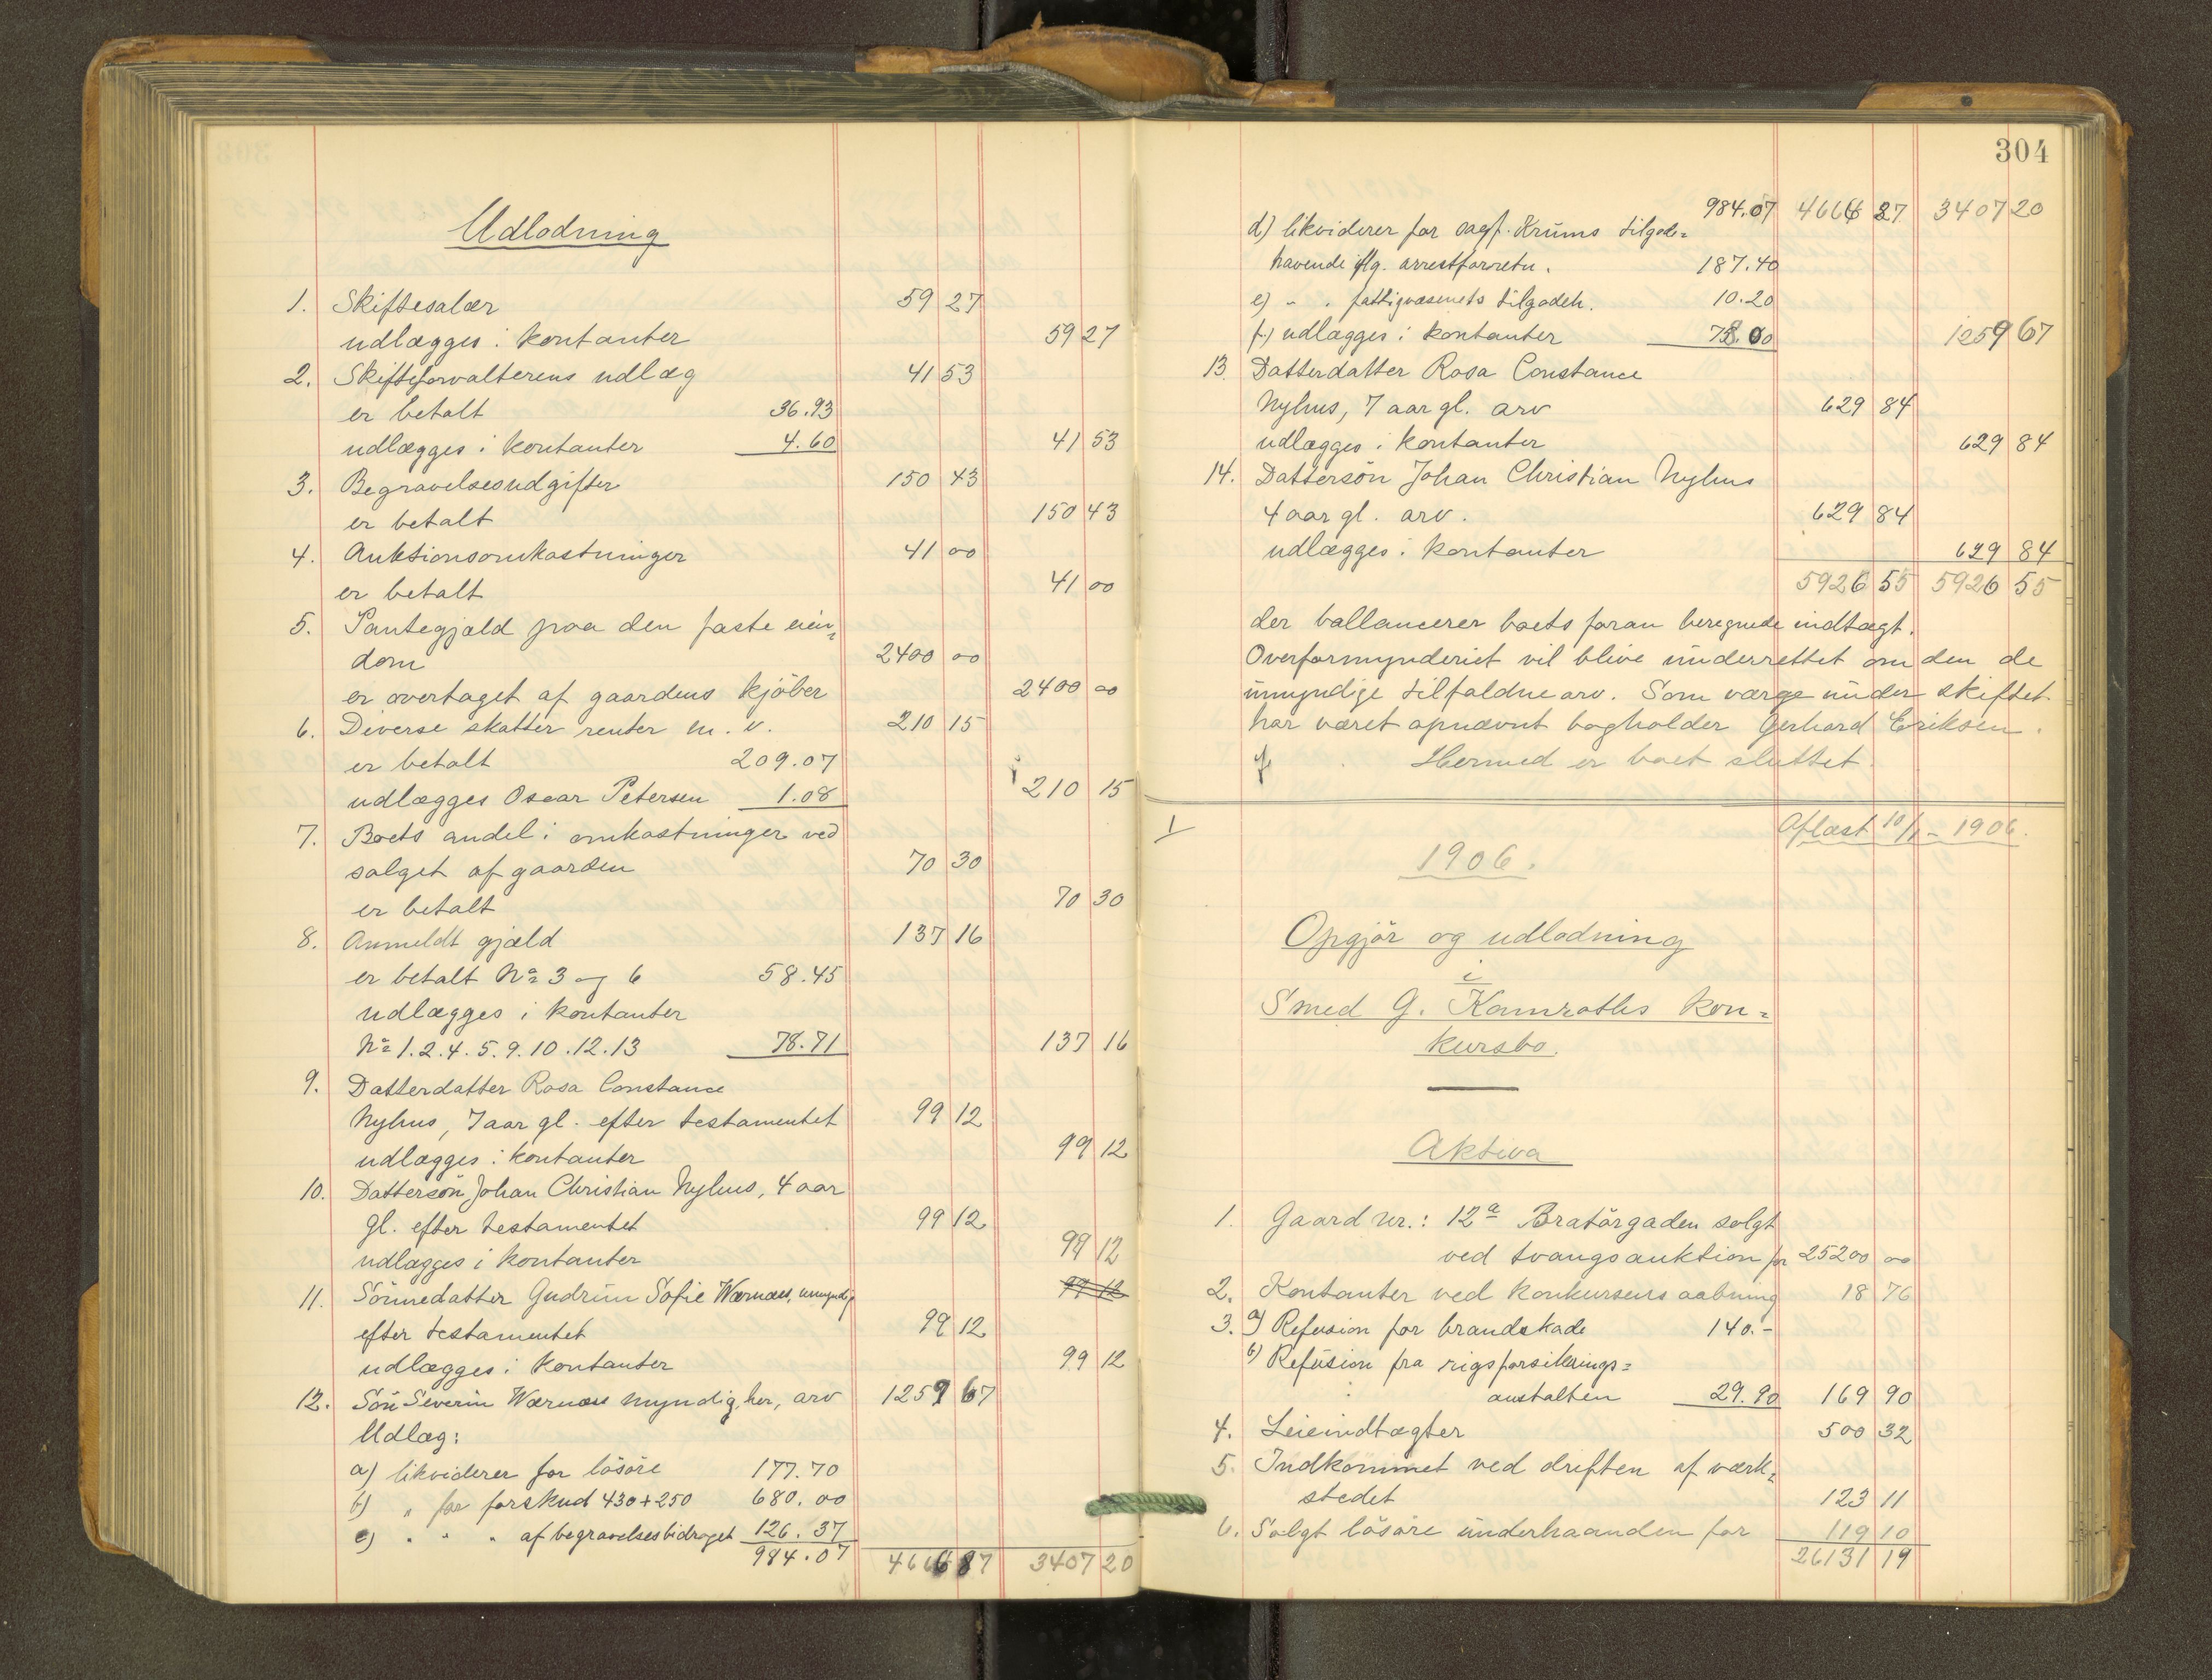 Udlodning
1. Skiftesalær 59 27
udlægges i kontanter 59 27
2. Skifteforvalterens udlæg 41 53
er betalt 36.93
udlægges i kontanter 4.60 41 53
3. Begravelsesudgifter 150 43
er betalt 150 43
4. Auktionsomkostninger 41 00
er betalt 41 00
5. Pantegjæld paa den faste eien=
dom 2400 00
er overtaget af gaardens kjöber 2400 00
6. Diverse skatter renter m. v. 210 15
er betalt 209.07
udlægges Oscar Petersen 1.08 210 15
7. Boets andel i omkostninger ved
salget af gaarden 70 30
er betalt 70 30
8. Anmeldt gjæld 137 16
er betalt No 3 og 6 58.45
udlægges i kontanter
No 1.2.4.5.9.10.12.13 78.71 137 16
9. Datterdatter Rosa Constance
Nyhus, 7 aar gl. efter testamentet 99 12
udlægges i kontanter 99 12
10. Dattersön Johan Christian Nyhus, 4 aar
gl. efter testamentet 99 12
udlægges i kontanter 99 12
11. Sönnedatter Gudrun Sofie Wærnæs, umyndig 99 12
efter testamentet 99 12
udlægges i kontanter 99 12
12. Sön Severin Wærnæs myndig, her, arv 1259 67
Udlæg:
a) likviderer for lösöre 177.70
b) " for forskud 430+250 680.00
c) " " " af begravelsesbidraget 126.37
984.07 4666 87 3407 20
304
984.07 4666 87 3407 20
d) likviderer for sagf. Krums tilgode=
havende iflg. arrestforretn. 187.40
e) " " fattigvæsenets tilgodeh. 10.20
f.) udlægges i kontanter 78.00 1259 67
13. Datterdatter Rosa Constance
Nyhus, 7 aar gl. arv 629 84
udlægges i kontanter 629 84
14. Dattersön Johan Christian Nyhus
4 aar gl. arv. 629 84
udlægges i kontanter 629 84
5926 55 5926 55
der ballancerer boets foran beregnede indtægt.
Overformynderiet vil blive underrettet om den de
umyndige tilfaldne arv. Som værge under skiftet
har været opnævnt bogholder Gerhard Eriksen.
Hermed er boet sluttet.
1 Oflæst 10/1 - 1906.
1906.
Opgjör og udlodning
i
Smed G. Kamraths kon=
kursbo.
Aktiva
1. Gaard nr.: 12a Bratörgaden solgt
ved tvangsauktion for 25200 00
2. Kontanter ved konkursens aabning 18 76
3. a) Refusion for brandskade 140.-
b) Refusion fra rigsforsikrings=
anstalten 29.90 169 90
4. Leieindtægter 500 32
5. Indkommet ved driften af værk=
stedet 123 11
6. Solgt lösöre underhaanden for 119 10
26131 19